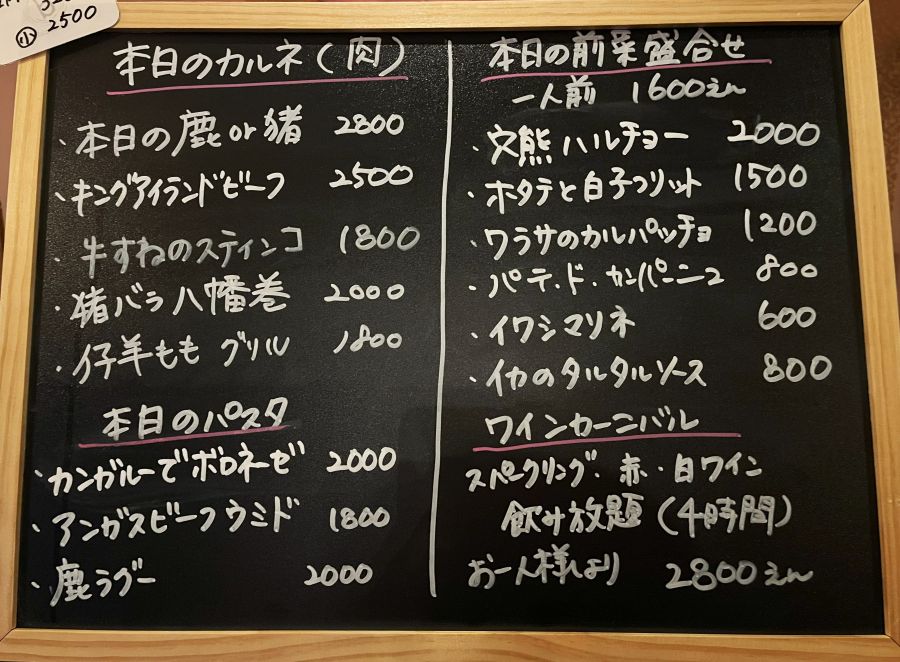 小 2500
本日のカルネ(肉)
・本日の鹿or猪 2800
・キングアイランドビーフ 2500
・牛すねのスティンコ 1800
・猪バラ八幡巻 2000
・仔羊もも グリル 1800
本日のパスタ
・カンガルーでボロネーゼ 2000
・アンガスビーフウミド 1800
・鹿ラグー 2000
本日の前菜盛合せ
一人前 1600えん
・ハルチョー 2000
・ホタテと白子フリット 1500
・ワラサのカルパッチョ 1200
・パテ・ド・カンパーニュ 800
・イワシマリネ 600
・イカのタルタルソース 800
ワインカーニバル
スパークリング・赤・白ワイン
飲み放題(4時間)
お一人様より 2800えん